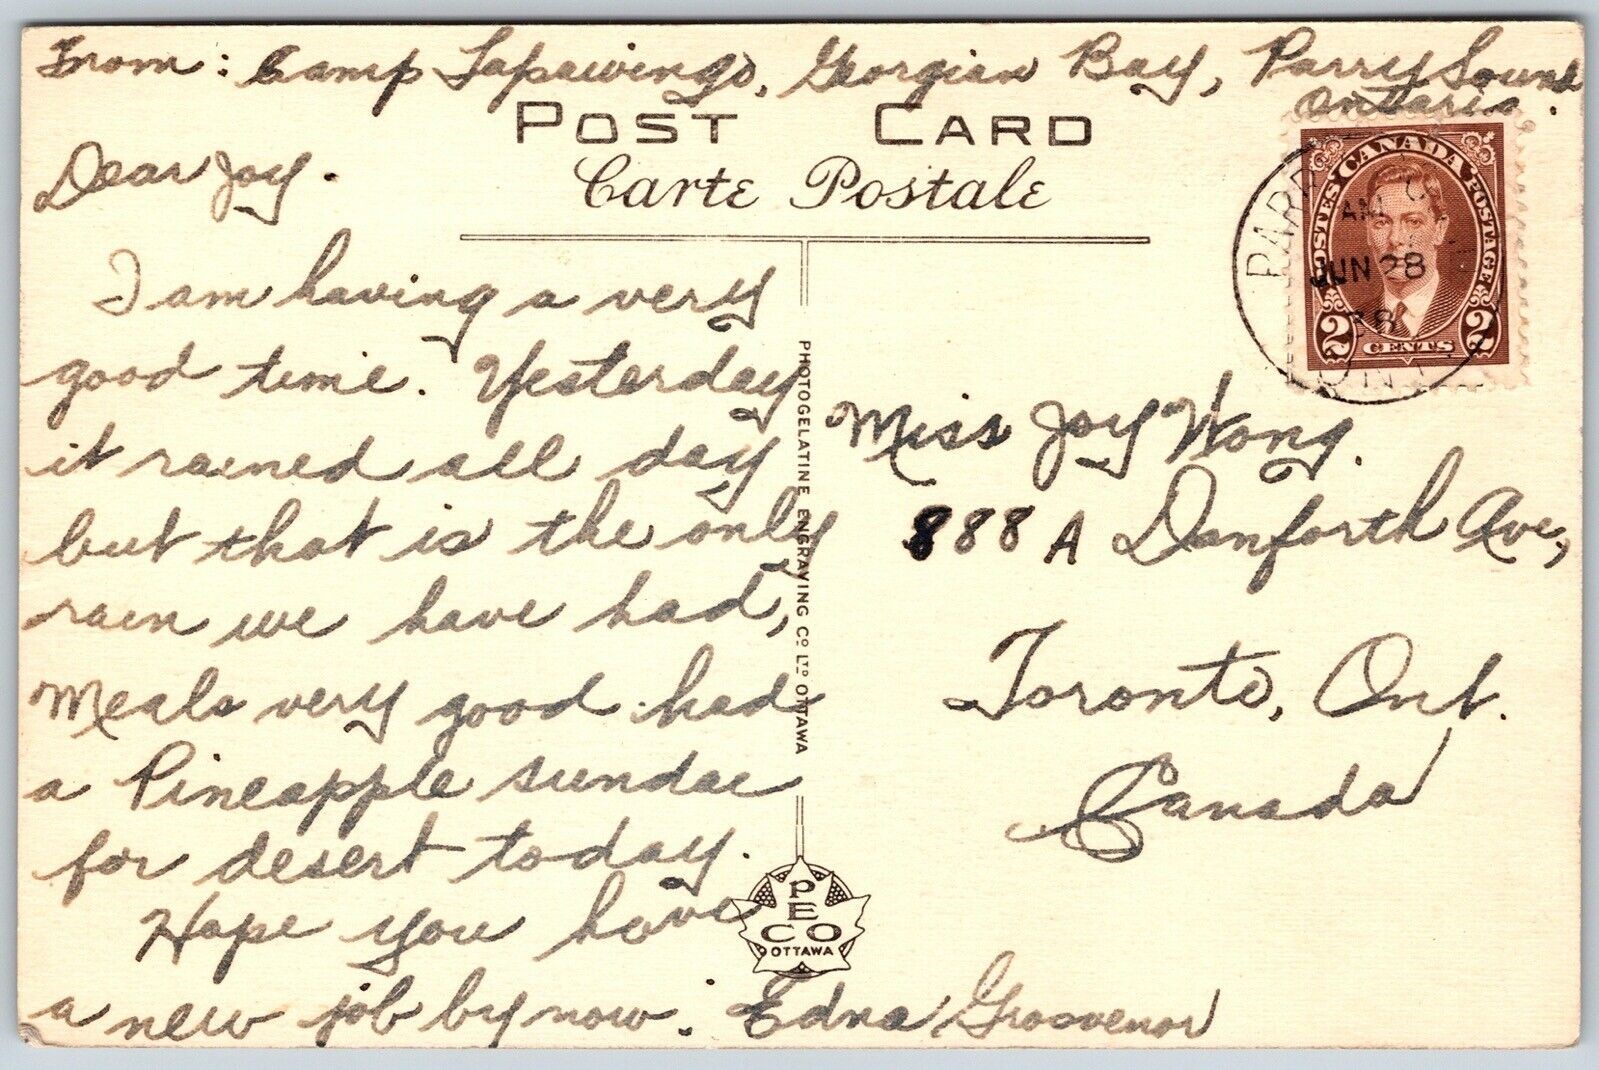 From: Camp Tapawingo, Georgian Bay, Parry Sound
Ontario.
POST CARD
Carte Postale
Dear Joy.
I am having a very
good time. Yesterday
it rained all day
but that is the only
rain we have had,
Meals very good had
a Pineapple sundae
for desert today.
Hope you have
a new job by now. Edna Grosvenor
PHOTOGELATINE ENGRAVING CO LTD OTTAWA
PECO
OTTAWA
POSTES CANADA POSTAGE
2 CENTS 2
PARR
AM
JUN 28
38
ONT
Miss Joy Wong.
888 A Danforth Ave,
Toronto, Ont.
Canada